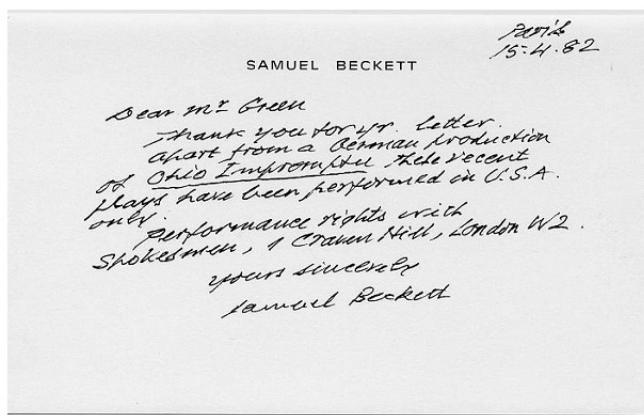 Paris
15.4.82
SAMUEL BECKETT
Dear Mr Green
Thank you for yr. letter.
Apart from a German production
of Ohio Impromptu these recent
plays have been performed in U.S.A.
only.
Performance rights with
Spokesmen, 1 Craven Hill, London W2.
Yours sincerely
Samuel Beckett